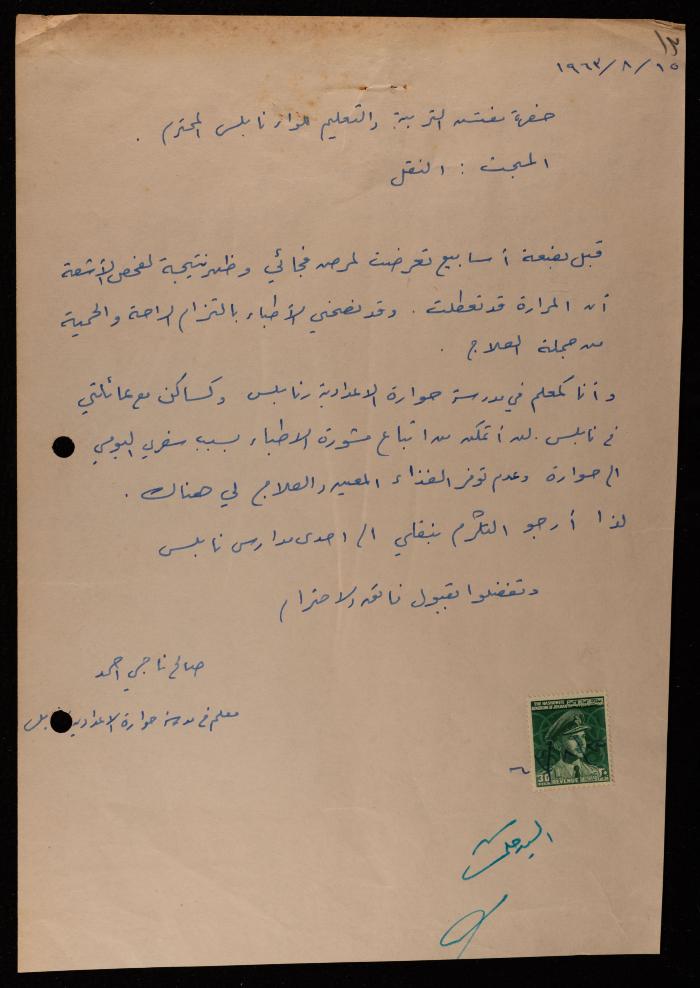 ١٩٦٣/٨/١٥
حضرة مفتش التربية والتعليم للواء نابلس المحترم .
المبحث : النقل
قبل بضعة أسابيع تعرضت لمرض فجائي وظهر نتيجة لفحص الأشعة
أن المرارة قد تعطلت . وقد نصحني الأطباء بالتزام الراحة والحمية
من جملة العلاج .
وأنا كمعلم في مدرسة حوارة الاعدادية / نابلس وكساكن مع عائلتي
في نابلس . لن أتمكن من اتباع مشورة الاطباء بسبب سفري اليومي
الى حوارة وعدم توفر الغذاء المعين والعلاج لي هناك .
لذا أرجو التكرم بنقلي الى احدى مدارس نابلس
وتفضلوا بقبول فائق الاحترام
صالح ناجي احمد
معلم في مدرسة حوارة الاعدادية
THE HASHEMITE
KINGDOM OF JORDAN
30 REVENUE ٣٠
السيد